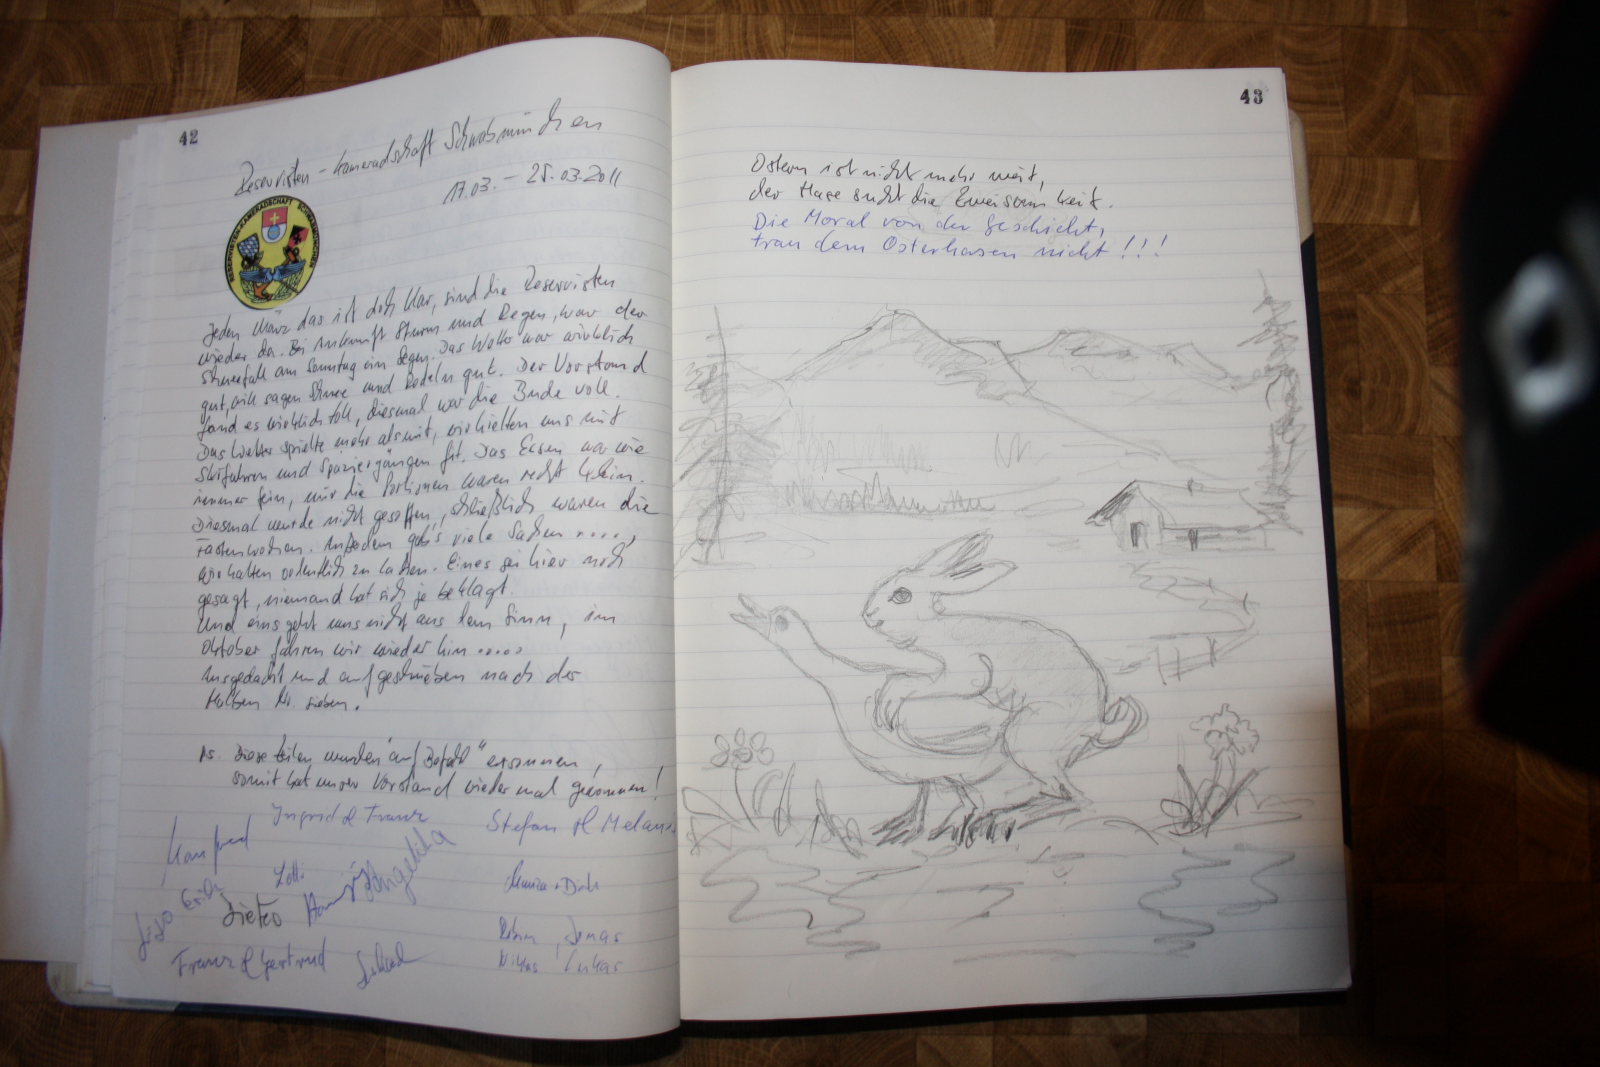 42
Reservisten-Kameradschaft Schwabmünchen
17.03. - 25.03.2011
RESERVISTEN-KAMERADSCHAFT SCHWABMÜNCHEN
Jeden März das ist doch klar, sind die Reservisten
wieder da. Bei Ankunft Sturm und Regen, war der
Schneefall am Sonntag ein Segen. Das Wetter war wirklich
gut, will sagen Schnee und Rodeln gut. Der Vorstand
fand es wirklich toll, diesmal war die Bude voll.
Das Wetter spielte mehr als mit, wir hielten uns mit
Skifahren und Spaziergängen fit. Das Essen war wie
immer fein, nur die Portionen waren recht klein.
Diesmal wurde nicht gesoffen, schließlich waren die
Fastenwochen. Außedem gab's viele Sachen ....,
wir hatten ordentlich zu lachen. Eines sei hier noch
gesagt, niemand hat sich je beklagt.
Und eins geht uns nicht aus dem Sinn, im
Oktober fahren wir wieder hin .....
Ausgedacht und aufgeschrieben nach der
Halben Nr. sieben.
Ps. Diese Zeilen wurden "auf Befehl" ersonnen,
somit hat unser Vorstand wieder mal gewonnen!
Ingrid & Franz
Stefan & Melanie
Manfred
Lotti
Angelika
Erich
Dieter
Franz & Gertrud
Robin, Jonas
Niklas Lukas
43
Ostern ist nicht mehr weit,
der Hase sucht die Zweisamkeit.
Die Moral von der Geschicht,
trau dem Osterhasen nicht!!!